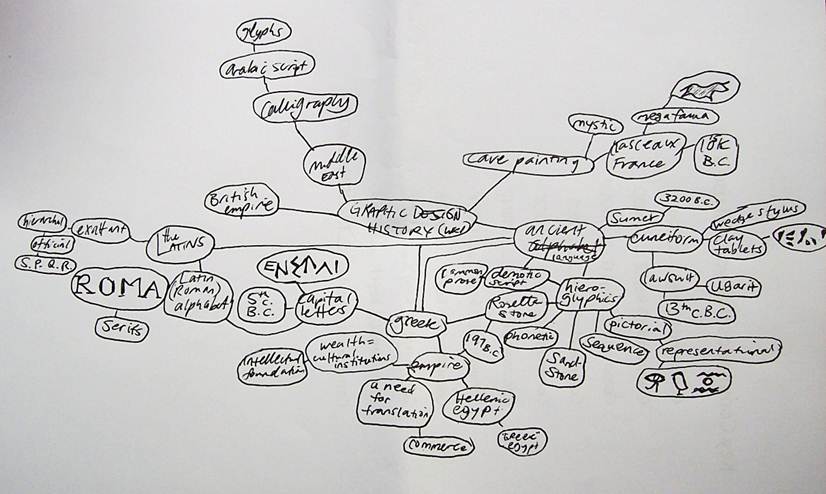 glyphs
arabic script
Calligraphy
middle
East
British
empire
GRAPHIC DESIGN
HISTORY
cave painting
mystic
megafauna
Lasceaux
France
18K
B.C.
hierarchal
official
S.P.Q.R
exultant
the
LATINS
ROMA
Serifs
Latin
(Roman)
alphabet
5th
C.
B.C.
capital
letters
greek
wealth=
cultural
institutions
intellectual
foundation
empire
a need
for
translation
commerce
Hellenic
egypt
Greek
egypt
ancient
language
common
prose
demotic
script
Rosetta
Stone
197 B.C
phonetic
hiero-
glyphics
Sand-
Stone
pictorial
sequence
representational
Sumer
3200 B.C.
cuneiform
wedge stylus
clay
tablets
lawsuit
Ugarit
13th C. B.C.